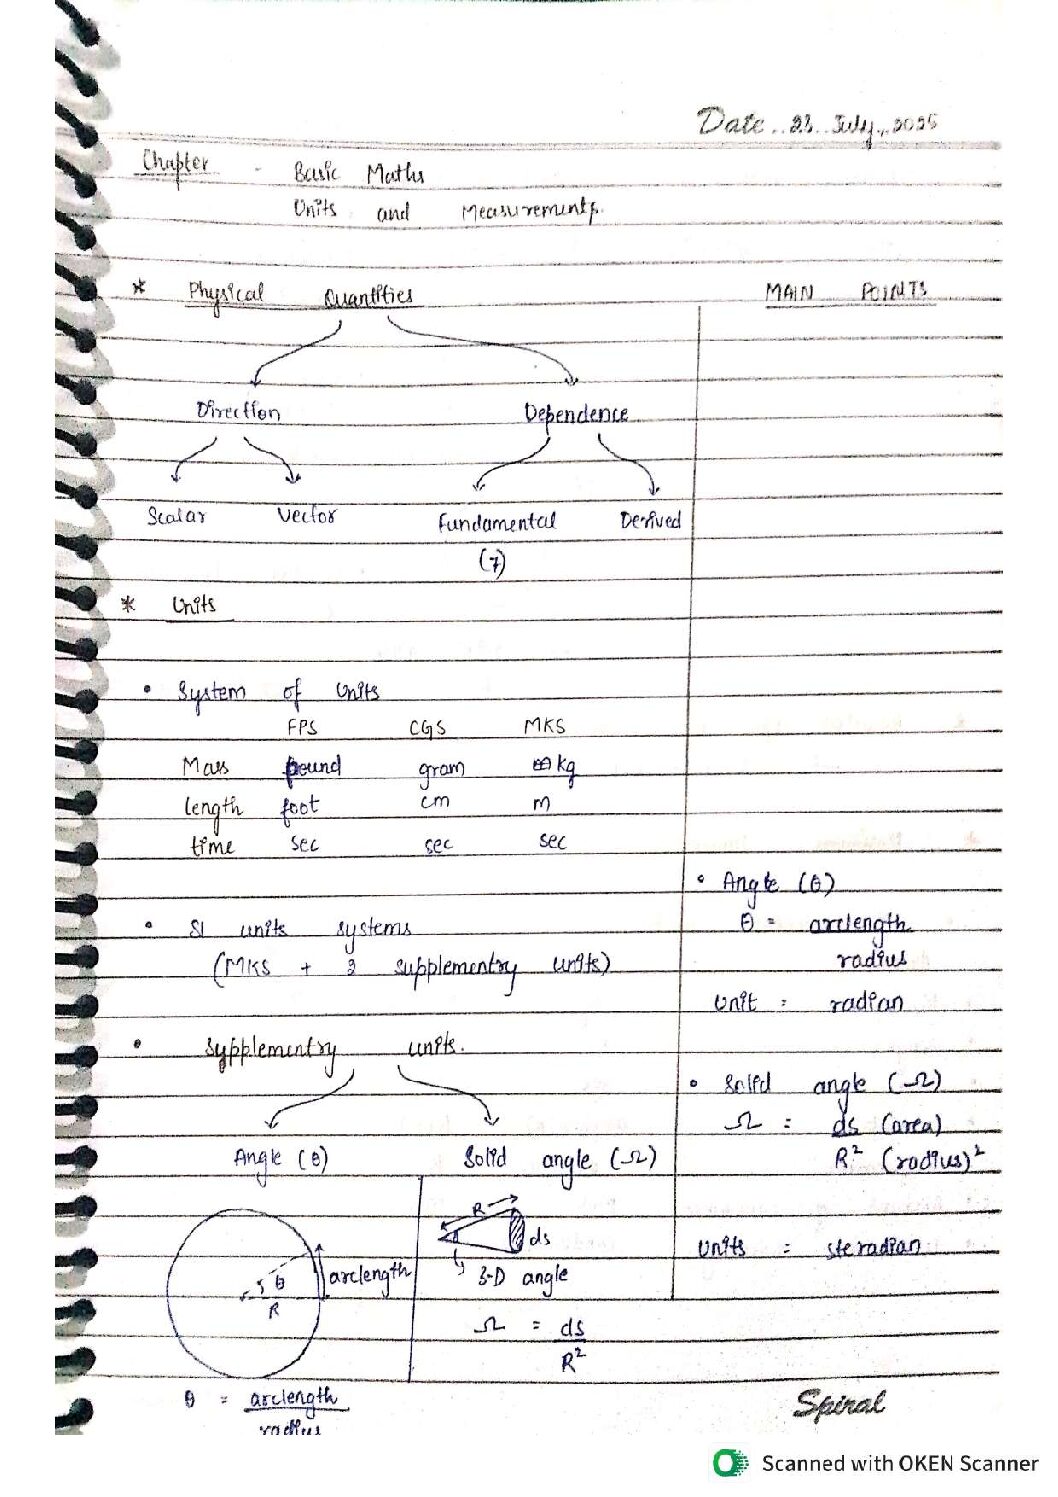 Date..23..July..2025
Chapter - Basic Maths
Units and Measurements.
* Physical Quantities
MAIN POINTS
Direction Dependence
Scalar Vector Fundamental Derived
(7)
* Units
• System of Units
FPS CGS MKS
Mass pound gram kg
length foot cm m
time sec sec sec
• SI units systems
(MKS + 3 supplementry units)
• Sypplementry units.
Angle (θ) Solid angle (Ω)
R
ds
3-D angle
θ
R
arclength
Ω = ds
R²
θ = arclength
radius
• Angle (θ)
θ = arclength
radius
Unit = radian
• Solid angle (Ω)
Ω = ds (area)
R² (radius)²
Units = steradian
Spiral
Scanned with OKEN Scanner